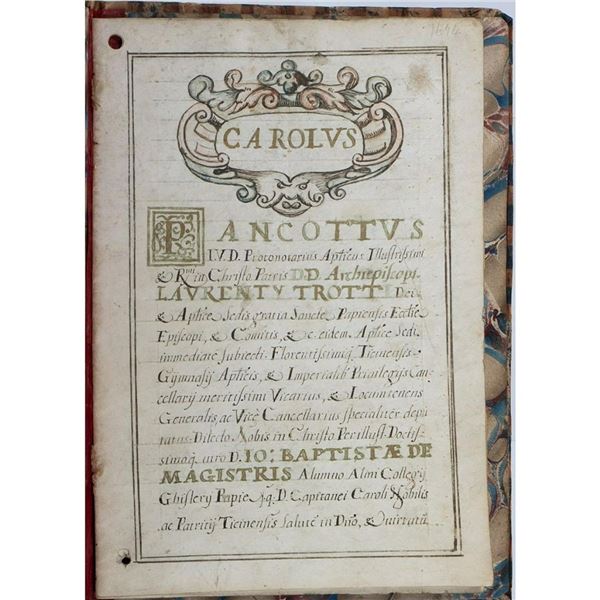 1694
CAROLVS
PANCOTTVS
I.V.D. Protonotarius Apticus Illustrissimi
& Rmi in Christo Patris D.D. Archiepiscopi
LAVRENTY TROTTI Dei
& Aptice Sedis gratia Sancte Papiensis Ecctie
Episcopi, & Comitis, & c. eidem Aptice Sedi
immediate subiecti. Florentissimiq. Ticinensis
Gymnasij Apticis, & Imperialib. Privilegijs Can
cellarij meritissimi Vicarius, & Locumtenens
Generalis, ac Vice Cancellarius specialiter depu
tatus. Dilecto Nobis in Christo Perillust. Doctis
simoq. viro D. IO: BAPTISTÆ DE
MAGISTRIS Alumno Almi Collegij
Ghislerij Papie q. D. Capitanei Caroli Nobilis
ac Patritij Ticinensis salutē in Dño, & Virtutū